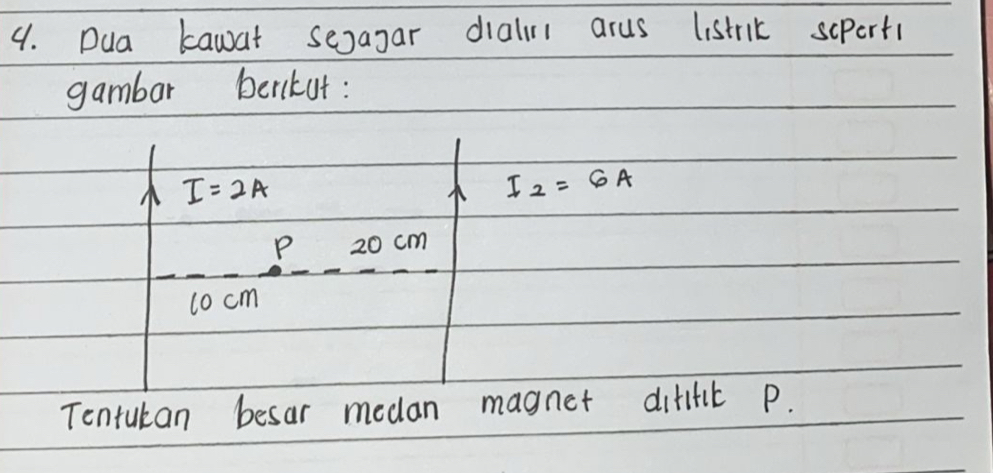 4. Dua kawat sejajar dialiri arus listrik seperti
gambar berikut :
I = 2A
I2 = 6A
P
20 cm
10 cm
Tentukan besar medan magnet dititik P.